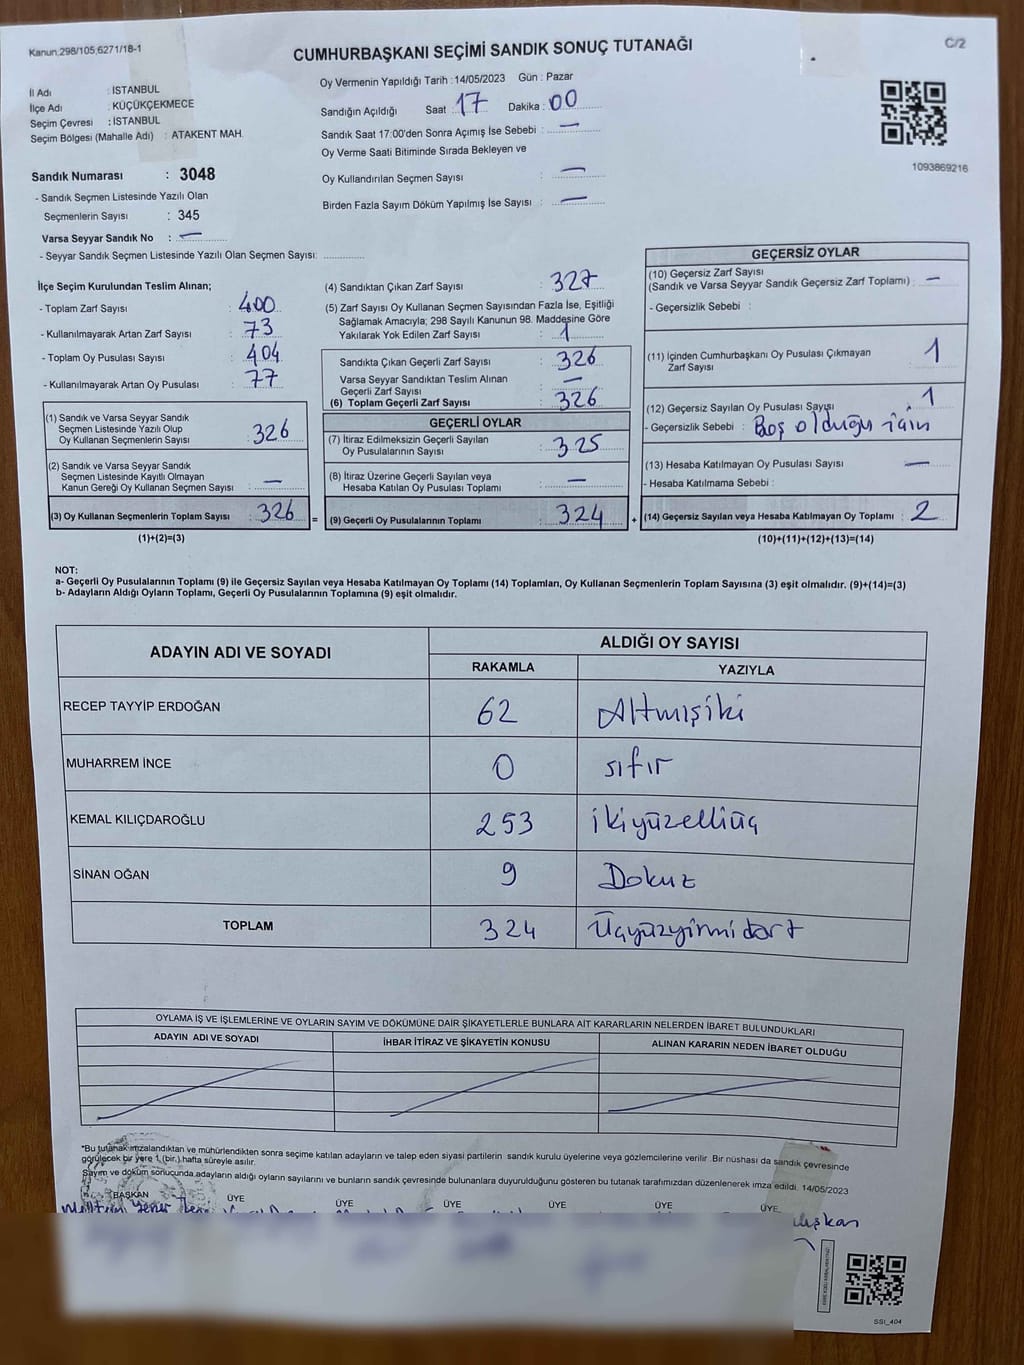 Kanun 298/105;6271/18-1
C/2
CUMHURBAŞKANI SEÇİMİ SANDIK SONUÇ TUTANAĞI
İl Adı : İSTANBUL
İlçe Adı : KÜÇÜKÇEKMECE
Seçim Çevresi : İSTANBUL
Seçim Bölgesi (Mahalle Adı) : ATAKENT MAH.
Sandık Numarası : 3048
- Sandık Seçmen Listesinde Yazılı Olan
Seçmenlerin Sayısı : 345
Varsa Seyyar Sandık No : —
- Seyyar Sandık Seçmen Listesinde Yazılı Olan Seçmen Sayısı:
Oy Vermenin Yapıldığı Tarih : 14/05/2023 Gün : Pazar
Sandığın Açıldığı Saat : 17 Dakika : 00
Sandık Saat 17:00'den Sonra Açımış İse Sebebi : —
Oy Verme Saati Bitiminde Sırada Bekleyen ve
Oy Kullandırılan Seçmen Sayısı : —
Birden Fazla Sayım Döküm Yapılmış İse Sayısı : —
1093869216
İlçe Seçim Kurulundan Teslim Alınan;
- Toplam Zarf Sayısı : 400
- Kullanılmayarak Artan Zarf Sayısı : 73
- Toplam Oy Pusulası Sayısı : 404
- Kullanılmayarak Artan Oy Pusulası : 77
(1) Sandık ve Varsa Seyyar Sandık
Seçmen Listesinde Yazılı Olup
Oy Kullanan Seçmenlerin Sayısı : 326
(2) Sandık ve Varsa Seyyar Sandık
Seçmen Listesinde Kayıtlı Olmayan
Kanun Gereği Oy Kullanan Seçmen Sayısı : —
(3) Oy Kullanan Seçmenlerin Toplam Sayısı : 326
(1)+(2)=(3)
(4) Sandıktan Çıkan Zarf Sayısı : 327
(5) Zarf Sayısı Oy Kullanan Seçmen Sayısından Fazla İse, Eşitliği
Sağlamak Amacıyla; 298 Sayılı Kanunun 98. Maddesine Göre
Yakılarak Yok Edilen Zarf Sayısı : 1
Sandıkta Çıkan Geçerli Zarf Sayısı : 326
Varsa Seyyar Sandıktan Teslim Alınan
Geçerli Zarf Sayısı : —
(6) Toplam Geçerli Zarf Sayısı : 326
GEÇERLİ OYLAR
(7) İtiraz Edilmeksizin Geçerli Sayılan
Oy Pusulalarının Sayısı : 325
(8) İtiraz Üzerine Geçerli Sayılan veya
Hesaba Katılan Oy Pusulası Toplamı : —
= (9) Geçerli Oy Pusulalarının Toplamı : 324 +
GEÇERSİZ OYLAR
(10) Geçersiz Zarf Sayısı
(Sandık ve Varsa Seyyar Sandık Geçersiz Zarf Toplamı) : —
- Geçersizlik Sebebi :
(11) İçinden Cumhurbaşkanı Oy Pusulası Çıkmayan
Zarf Sayısı 1
(12) Geçersiz Sayılan Oy Pusulası Sayısı 1
- Geçersizlik Sebebi : Boş olduğu için
(13) Hesaba Katılmayan Oy Pusulası Sayısı : —
- Hesaba Katılmama Sebebi :
(14) Geçersiz Sayılan veya Hesaba Katılmayan Oy Toplamı : 2
(10)+(11)+(12)+(13)=(14)
NOT:
a- Geçerli Oy Pusulalarının Toplamı (9) ile Geçersiz Sayılan veya Hesaba Katılmayan Oy Toplamı (14) Toplamları, Oy Kullanan Seçmenlerin Toplam Sayısına (3) eşit olmalıdır. (9)+(14)=(3)
b- Adayların Aldığı Oyların Toplamı, Geçerli Oy Pusulalarının Toplamına (9) eşit olmalıdır.
ADAYIN ADI VE SOYADI ALDIĞI OY SAYISI
RAKAMLA YAZIYLA
RECEP TAYYİP ERDOĞAN 62 Altmışiki
MUHARREM İNCE 0 sıfır
KEMAL KILIÇDAROĞLU 253 ikiyüzelliüç
SİNAN OĞAN 9 Dokuz
TOPLAM 324 Üçyüzyirmidört
OYLAMA İŞ VE İŞLEMLERİNE VE OYLARIN SAYIM VE DÖKÜMÜNE DAİR ŞİKAYETLERLE BUNLARA AİT KARARLARIN NELERDEN İBARET BULUNDUKLARI
ADAYIN ADI VE SOYADI İHBAR İTİRAZ VE ŞİKAYETİN KONUSU ALINAN KARARIN NEDEN İBARET OLDUĞU
*Bu tutanak imzalandıktan ve mühürlendikten sonra seçime katılan adayların ve talep eden siyasi partilerin sandık kurulu üyelerine veya gözlemcilerine verilir. Bir nüshası da sandık çevresinde
görülecek bir yere 1 (bir) hafta süreyle asılır.
Sayım ve döküm sonucunda adayların aldığı oyların sayılarını ve bunların sandık çevresinde bulunanlara duyurulduğunu gösteren bu tutanak tarafımızdan düzenlenerek imza edildi. 14/05/2023
BAŞKAN ÜYE ÜYE ÜYE ÜYE ÜYE ÜYE
SSI_404